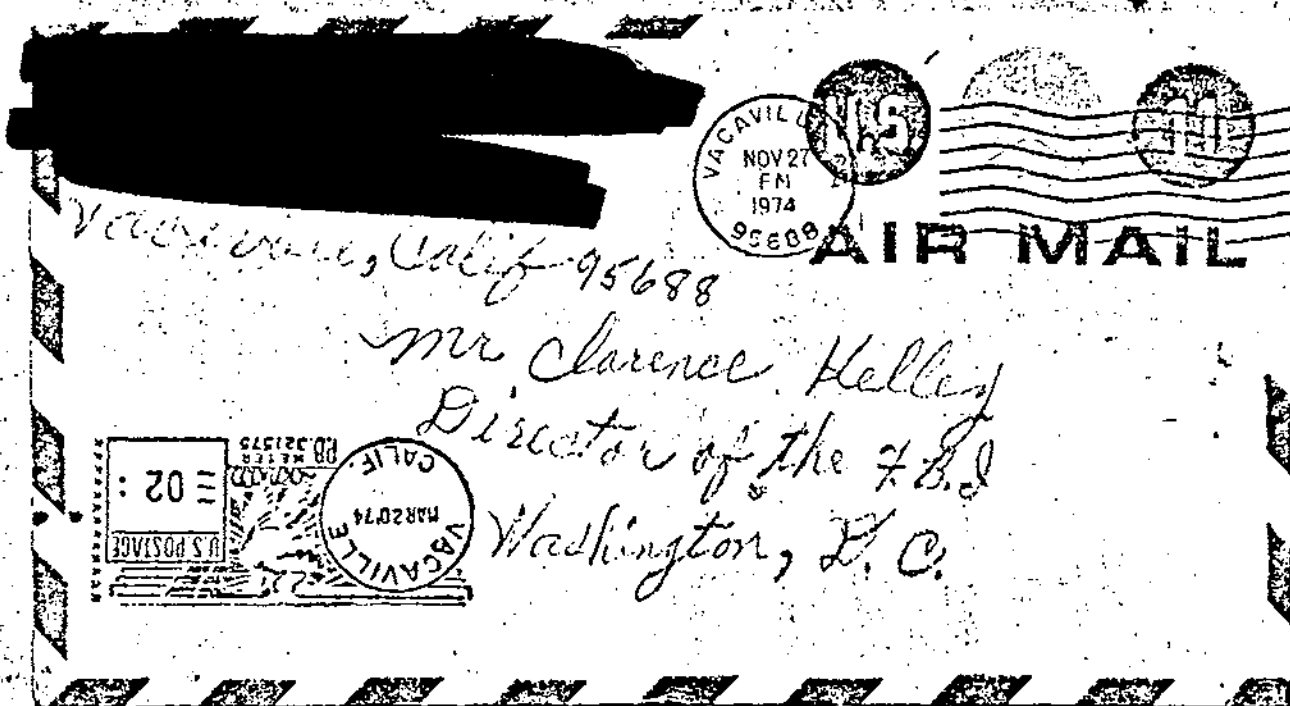 VACAVILLE
NOV 27
PM
1974
95688
U.S
11
AIR MAIL
Vacaville, Calif 95688
Mr Clarence Kelley
Director of the F.B.I
Washington, D. C.
U.S. POSTAGE
02
P.B. METER
321575
VACAVILLE
MAR 20 '74
CALIF.